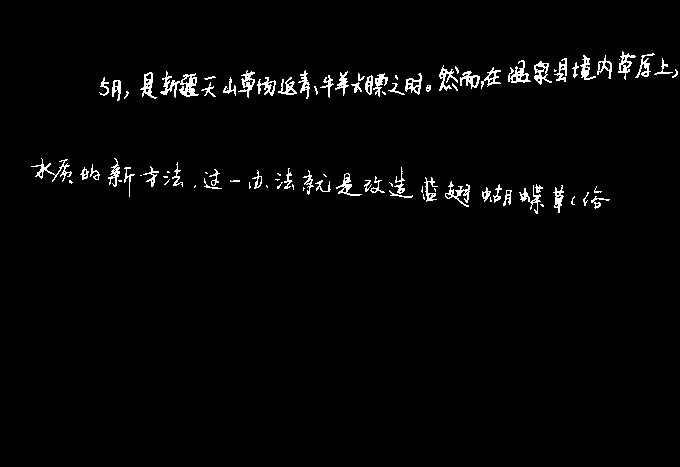 5月,是新疆天山草场返青、牛羊长膘之时。然而,在温泉县境内草原上,
水质的新方法.这一办法就是改造蓝翅蝴蝶草(俗